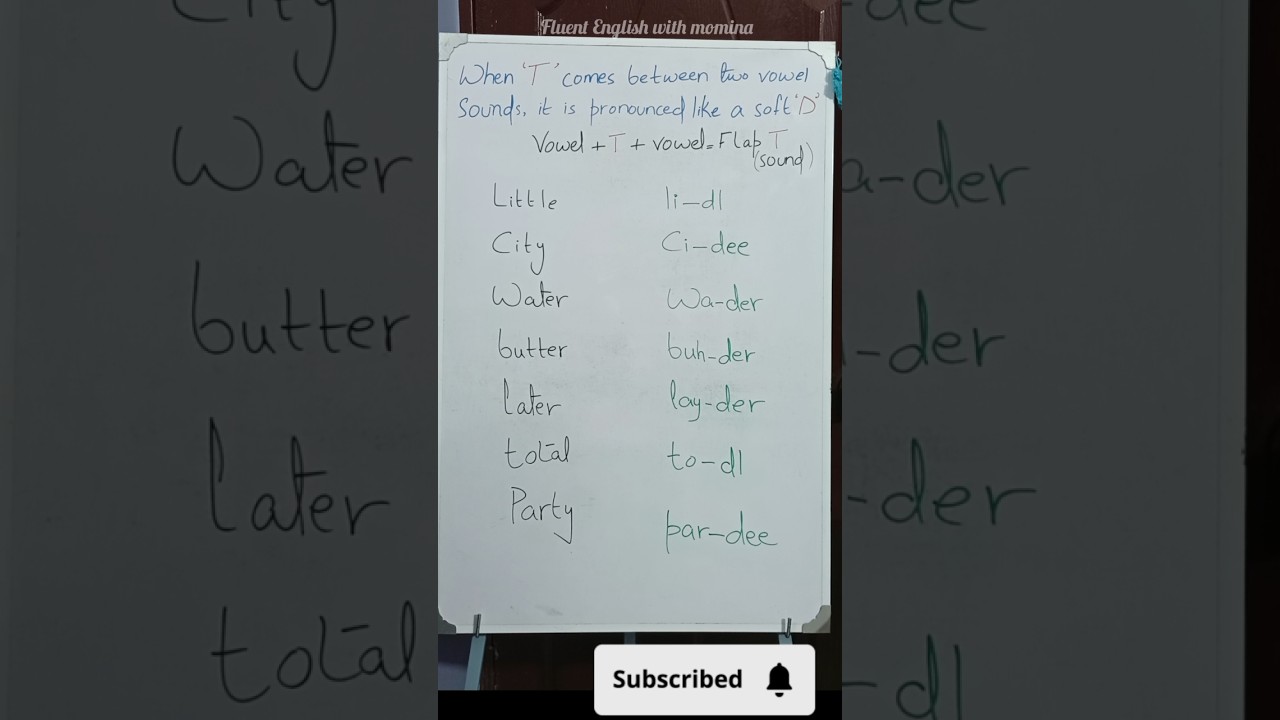 Fluent English with momina
When 'T' comes between two vowel
Sounds, it is pronounced like a soft 'D'
Vowel + T + vowel = Flap T
(sound)
Little li-dl
City Ci-dee
Water Wa-der
butter buh-der
Later lay-der
total to-dl
Party par-dee
Subscribed